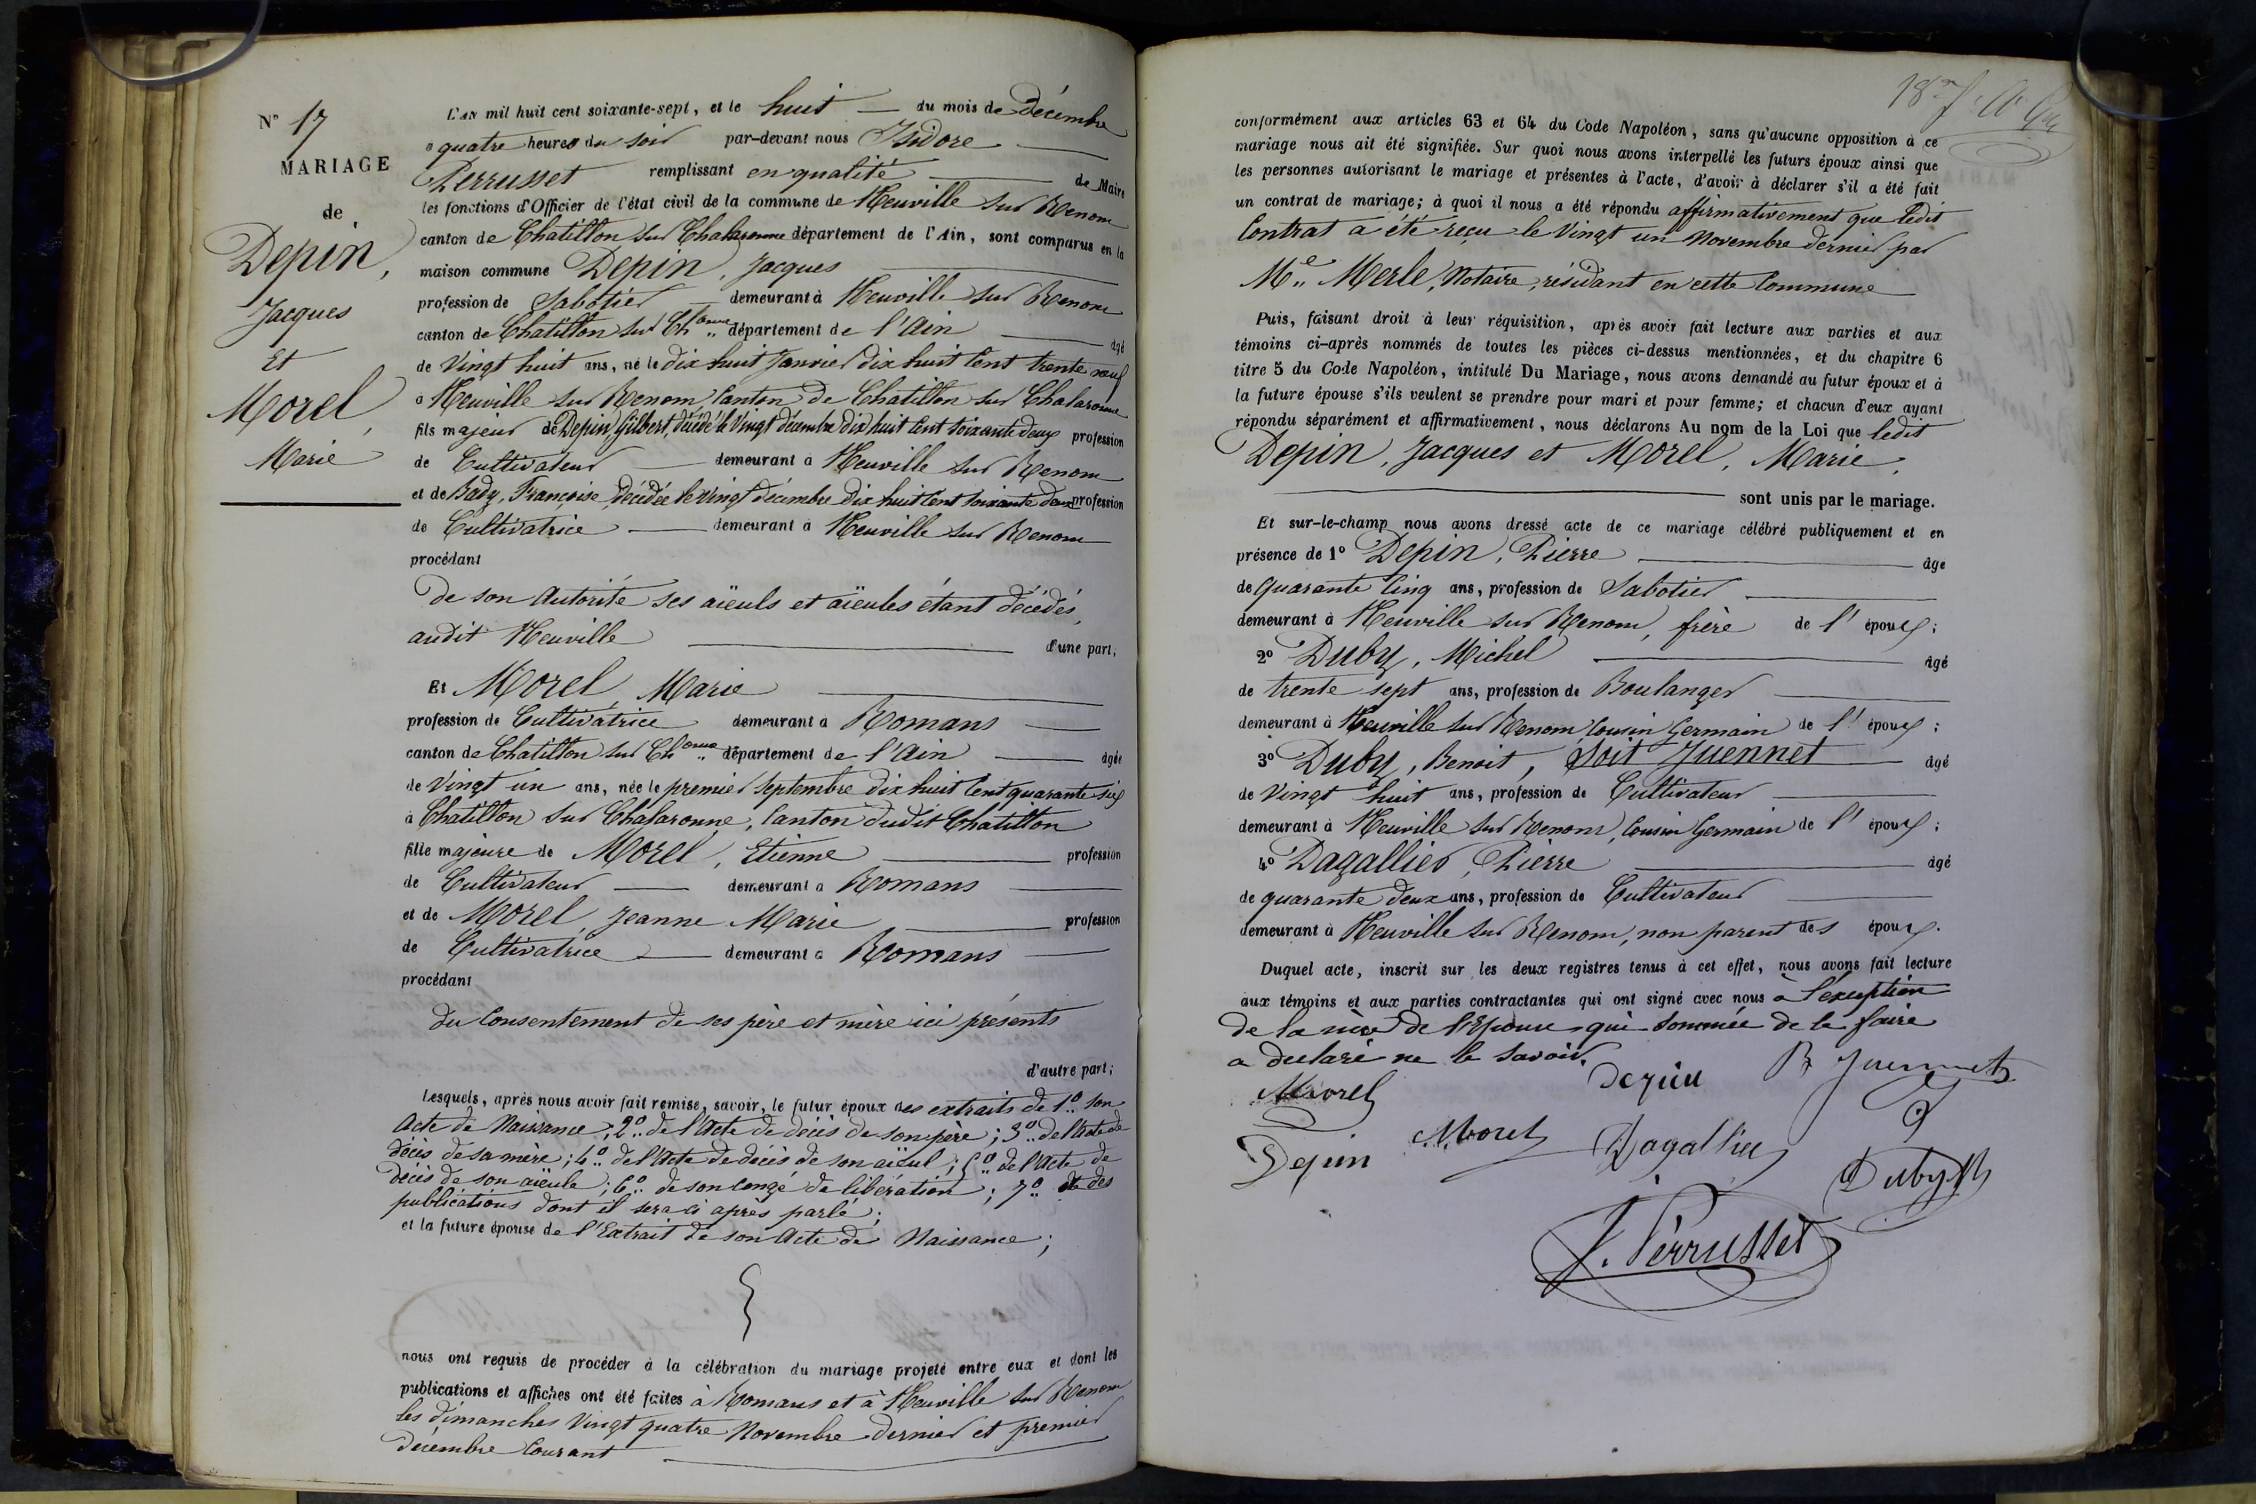 N° 17
MARIAGE
de
Depin,
Jacques
Et
Morel,
Marie
L'an mil huit cent soixante-sept, et le huit du mois de Décembre
à quatre heures du soir par-devant nous Isidore
Perrusset remplissant en qualité de Maire
les fonctions d'Officier de l'état civil de la commune de Neuville sur Renom
canton de Chatillon sur Chalaronne département de l'Ain, sont comparus en la
maison commune Depin, Jacques
profession de Sabotier demeurant à Neuville sur Renom
canton de Chatillon sur Ch.onne département de l'Ain âgé
de Vingt huit ans, né le dix huit Janvier dix huit cent trente neuf
à Neuville sur Renom Canton de Chatillon sur Chalaronne
fils majeur de Depin, Gilbert, décédé le Vingt décembre dix huit cent soixante deux profession
de Cultivateur demeurant à Neuville sur Renom
et de Bady, Françoise, décédée le vingt décembre dix huit cent soixante deux profession
de Cultivatrice demeurant à Neuville sur Renom
procédant
De son Autorité ses aïeuls et aïeules étant décédés,
audit Neuville d'une part;
Et Morel, Marie
profession de Cultivatrice demeurant à Romans
canton de Chatillon sur Ch.onne département de l'Ain âgée
de Vingt un ans, née le premier Septembre dix huit Cent quarante six
à Chatillon sur Chalaronne, Canton dudit Chatillon
fille majeure de Morel, Etienne profession
de Cultivateur demeurant à Romans
et de Morel, Jeanne Marie profession
de Cultivatrice demeurant à Romans
procédant
du Consentement de ses père et mère ici présents
d'autre part;
Lesquels, après nous avoir fait remise, savoir, le futur époux des extraits de 1° son
Acte de Naissance; 2° de l'Acte de décès de son père; 3° de l'Acte de
décès de sa mère; 4° de l'Acte de décès de son aïeul; 5° de l'Acte de
décès de son aïeule; 6° de son congé de libération; 7° des
publications dont il sera ci après parlé;
et la future épouse de l'Extrait de son Acte de Naissance;
nous ont requis de procéder à la célébration du mariage projeté entre eux et dont les
publications et affiches ont été faites à Romans et à Neuville sur Renom
les dimanches Vingt quatre Novembre dernier et premier
décembre Courant
conformément aux articles 63 et 64 du Code Napoléon, sans qu'aucune opposition à ce
mariage nous ait été signifiée. Sur quoi nous avons interpellé les futurs époux ainsi que
les personnes autorisant le mariage et présentes à l'acte, d'avoir à déclarer s'il a été fait
un contrat de mariage; à quoi il nous a été répondu affirmativement que ledit
Contrat a été reçu le Vingt un Novembre dernier par
Me Merle, Notaire, résidant en cette Commune
Puis, faisant droit à leur réquisition, après avoir fait lecture aux parties et aux
témoins ci-après nommés de toutes les pièces ci-dessus mentionnées, et du chapitre 6
titre 5 du Code Napoléon, intitulé Du Mariage, nous avons demandé au futur époux et à
la future épouse s'ils veulent se prendre pour mari et pour femme; et chacun d'eux ayant
répondu séparément et affirmativement, nous déclarons Au nom de la Loi que ledit
Depin, Jacques et Morel, Marie,
sont unis par le mariage.
Et sur-le-champ nous avons dressé acte de ce mariage célébré publiquement et en
présence de 1° Depin, Pierre âgé
de quarante Cinq ans, profession de Sabotier
demeurant à Neuville sur Renom, frère de l'époux;
2° Duby, Michel âgé
de trente sept ans, profession de Boulanger
demeurant à Neuville sur Renom, Cousin Germain de l'époux;
3° Duby, Benoit, Soit Juennet âgé
de Vingt huit ans, profession de Cultivateur
demeurant à Neuville sur Renom, Cousin Germain de l'époux;
4° Dagallier, Pierre âgé
de quarante deux ans, profession de Cultivateur
demeurant à Neuville sur Renom, non parent des époux.
Duquel acte, inscrit sur les deux registres tenus à cet effet, nous avons fait lecture
aux témoins et aux parties contractantes qui ont signé avec nous à l'exception
de la mère de l'Epouse qui sommée de le faire
a declaré ne le savoir.
Morel Depin B Juennet
Depin Morel Dagallier
Duby M
J. Perrusset